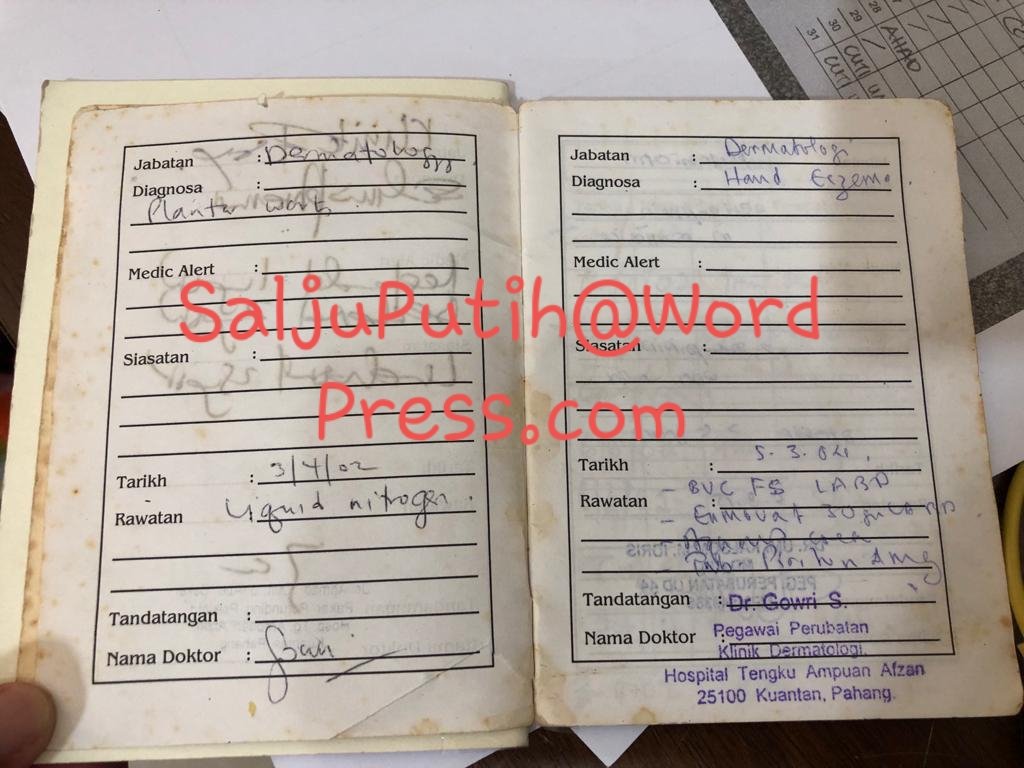 Jabatan : Dermatology
Diagnosa :
Plantar warts
Medic Alert :
Siasatan :
Tarikh : 3/4/02
Rawatan : Liquid nitrogen.
Tandatangan :
Nama Doktor :
Jabatan : Dermatologi
Diagnosa : Hand Eczema
Medic Alert :
Siasatan :
Tarikh : 5.3.04.
Rawatan : - BVC FS LA BD
Tandatangan : Dr. Gowri S.
Nama Doktor : Pegawai Perubatan
Klinik Dermatologi.
Hospital Tengku Ampuan Afzan
25100 Kuantan, Pahang.
SaljuPutih@Word
Press.com
31 30 29 28
CUTI CUTI / AHAD